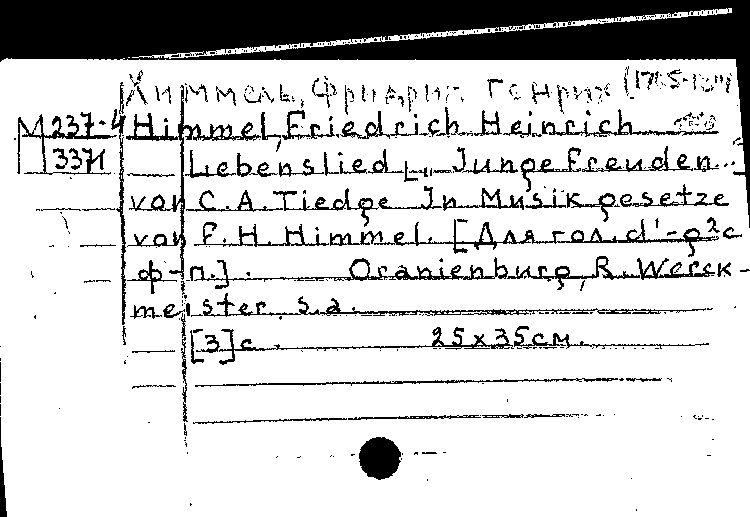 Химмель, Фридрих Генрих (1765-1814)
М 237-4 Himmel, Friedrich Heinrich
3371 Liebenslied [„Junge Freuden...]
von C. A. Tiedge In Musik gesetze
von F. H. Himmel. [Для гол. d'-g² с
ф-п.]. Oranienburg, R. Werck-
meister, s.a.
[3]с. 25x35см.